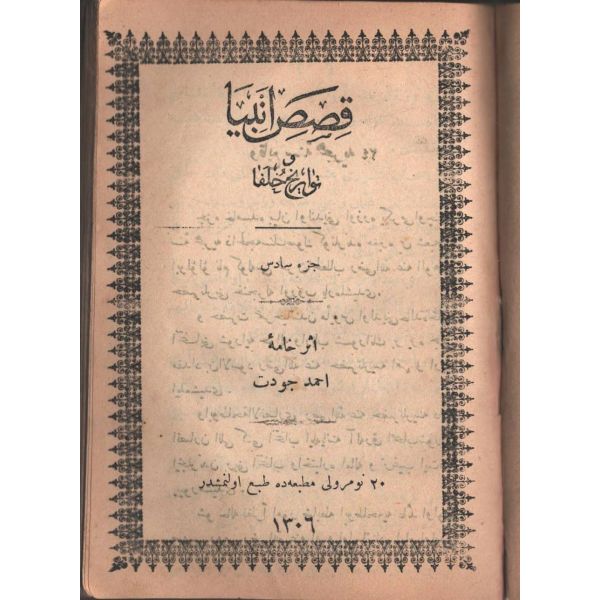 قصص انبیا
و
تواریخ خلفا
جزء سادس
اثر خامهٔ
احمد جودت
٢٠ نومرولی مطبعه‌ده طبع اولنمشدر
١٣٠٦